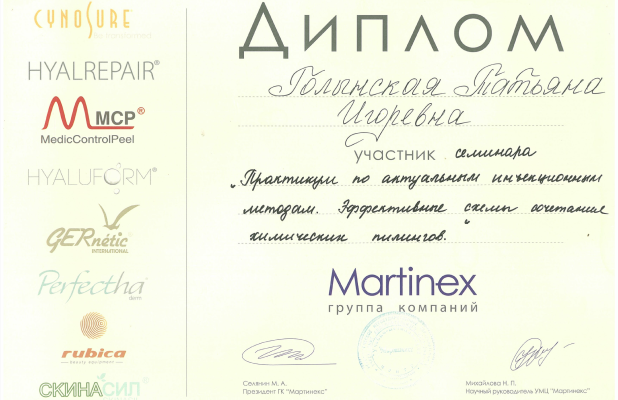 CYNOSURE®
HYALREPAIR®
MCP®
MedicControlPeel
HYALUFORM®
GERnétic
INTERNATIONAL
Perfectha
derm
rubica
СКИНАСИЛ
ДИПЛОМ
Голынская Татьяна
Игоревна
участник семинара
„Практикум по актуальным инъекционным
методам. Эффективные схемы сочетания
химических пилингов."
Martinex
группа компаний
Селянин М. А.
Президент ГК "Мартинекс"
Михайлова Н. П.
Научный руководитель УМЦ "Мартинекс"